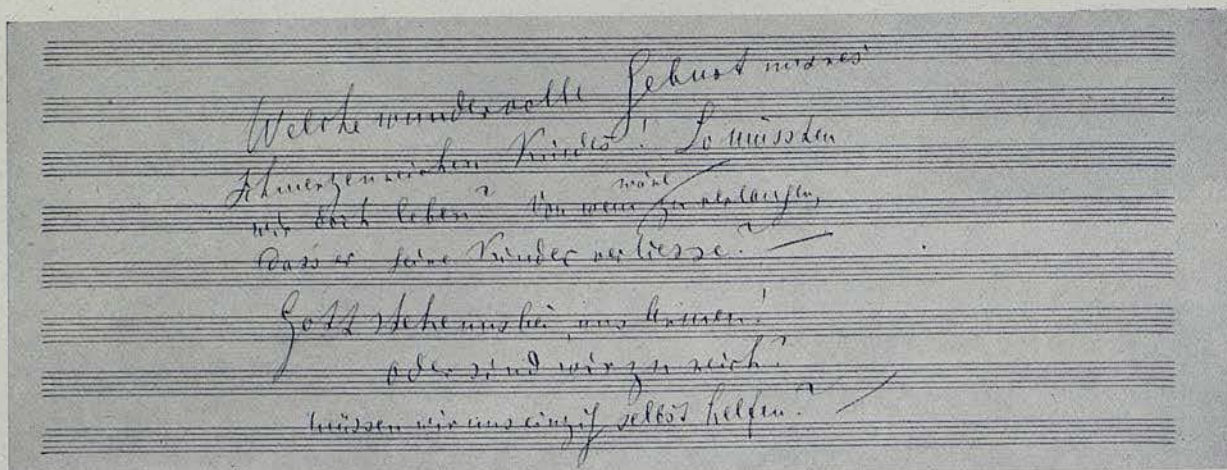 Welche wundervolle Geburt unsres
schmerzensreichen Kindes! So müssten
wir doch leben? Von wem wäre zu verlangen,
dass er seine Kinder verliesse? —
Gott stehe uns bei, uns Armen!
oder sind wir zu reich?
Müssen wir uns einzig selbst helfen? —